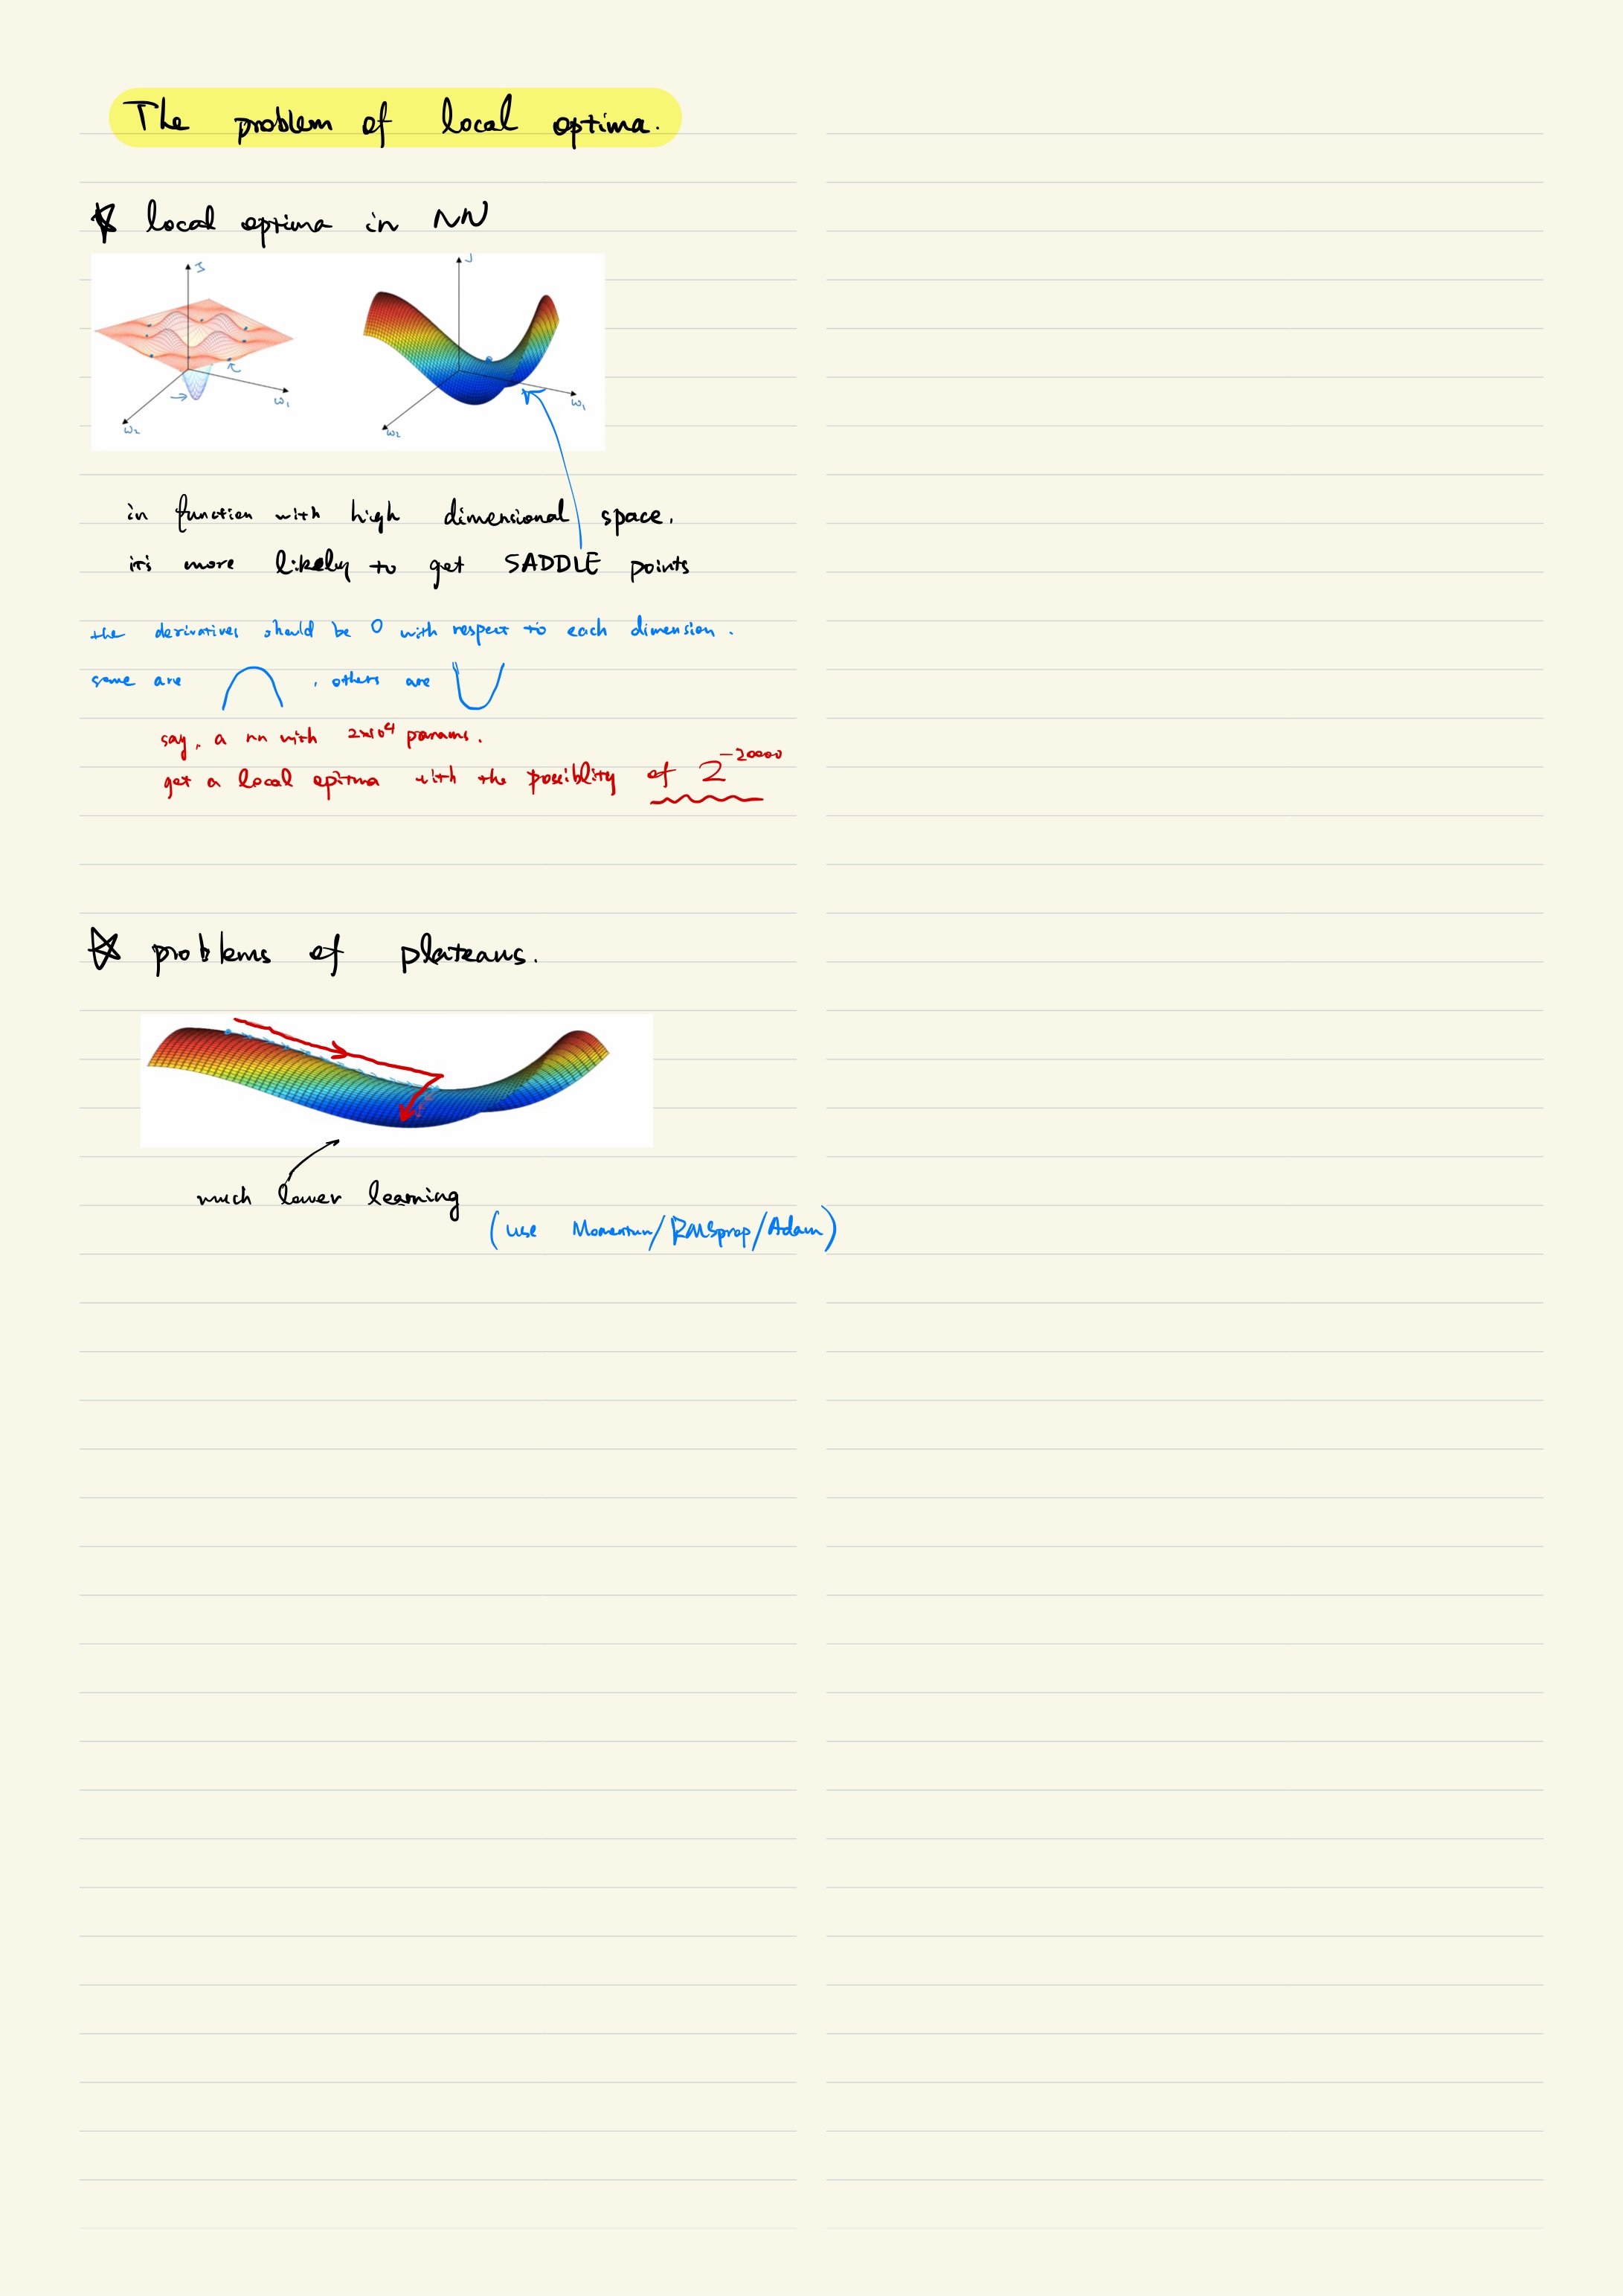 The problem of local optima.
local optima in NN
J
ω₁
ω₂
J
ω₁
ω₂
in function with high dimensional space,
it's more likely to get SADDLE points
the derivatives should be 0 with respect to each dimension.
some are , others are
say, a nn with 2×10⁴ params.
get a local optima with the possiblity of 2⁻²⁰⁰⁰⁰
problems of plateaus.
much lower learning
(use Momentum/RMSprop/Adam)